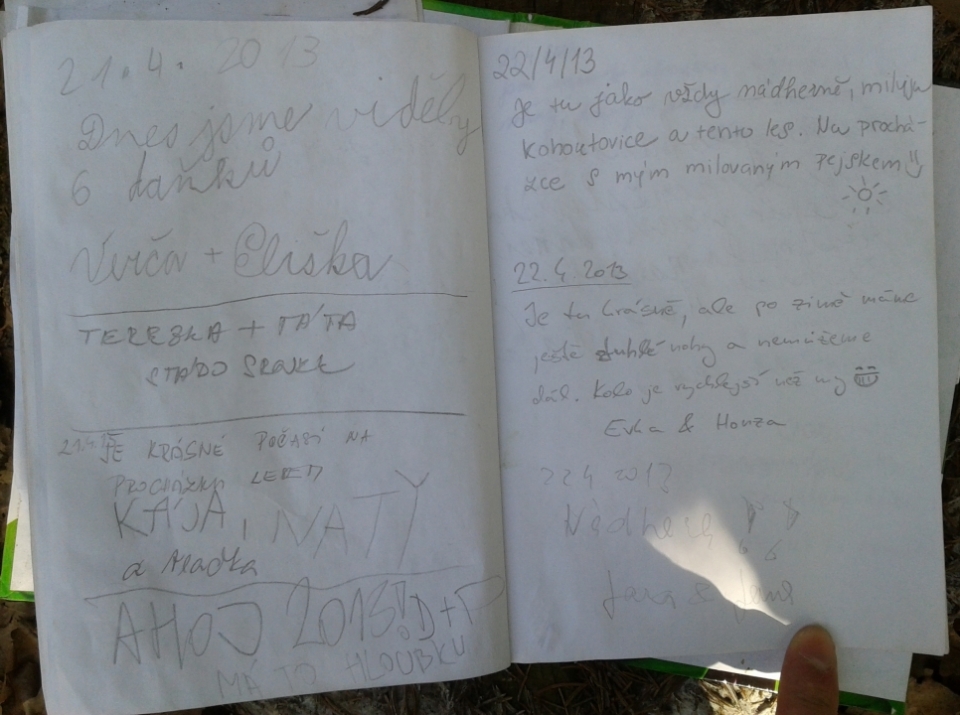 21. 4. 2013
Dnes jsme viděly
6 daňků
Verča + Eliška
TEREZKA + TÁTA
STÁDO
21.4. JE KRÁSNÉ POČASÍ NA
PROCHÁZKU
KÁJA, NATÝ
a
AHOJ 2013! D+P
MÁ TO HLOUBKU
22/4/13
Je tu jako vždy nádherně, miluju
Kohoutovice a tento les. Na prochá-
zce s mým milovaným pejskem
22.4. 2013
Je tu krásně, ale po zimě máme
ještě ztuhlé nohy a nemůžeme
dál. Kolo je rychlejší než my
Evka & Honza
22 4 2013
Jana